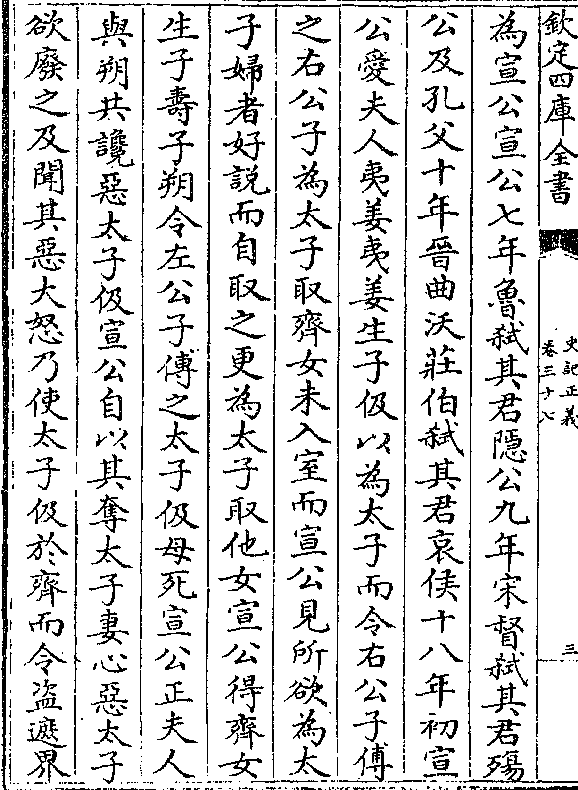 欽定四庫全書
史記正義
卷三十七
三
為宣公宣公七年魯弑其君隱公九年宋督弑其君殤
公及孔父十年晉曲沃莊伯弑其君哀侯十八年初宣
公愛夫人夷姜夷姜生子伋以為太子而令右公子傅
之右公子為太子取齊女未入室而宣公見所欲為太
子婦者好說而自取之更為太子取他女宣公得齊女
生子壽子朔令左公子傅之太子伋母死宣公正夫人
與朔共讒惡太子伋宣公自以其奪太子妻心惡太子
欲廢之及聞其惡大怒乃使太子伋於齊而令盜遮界